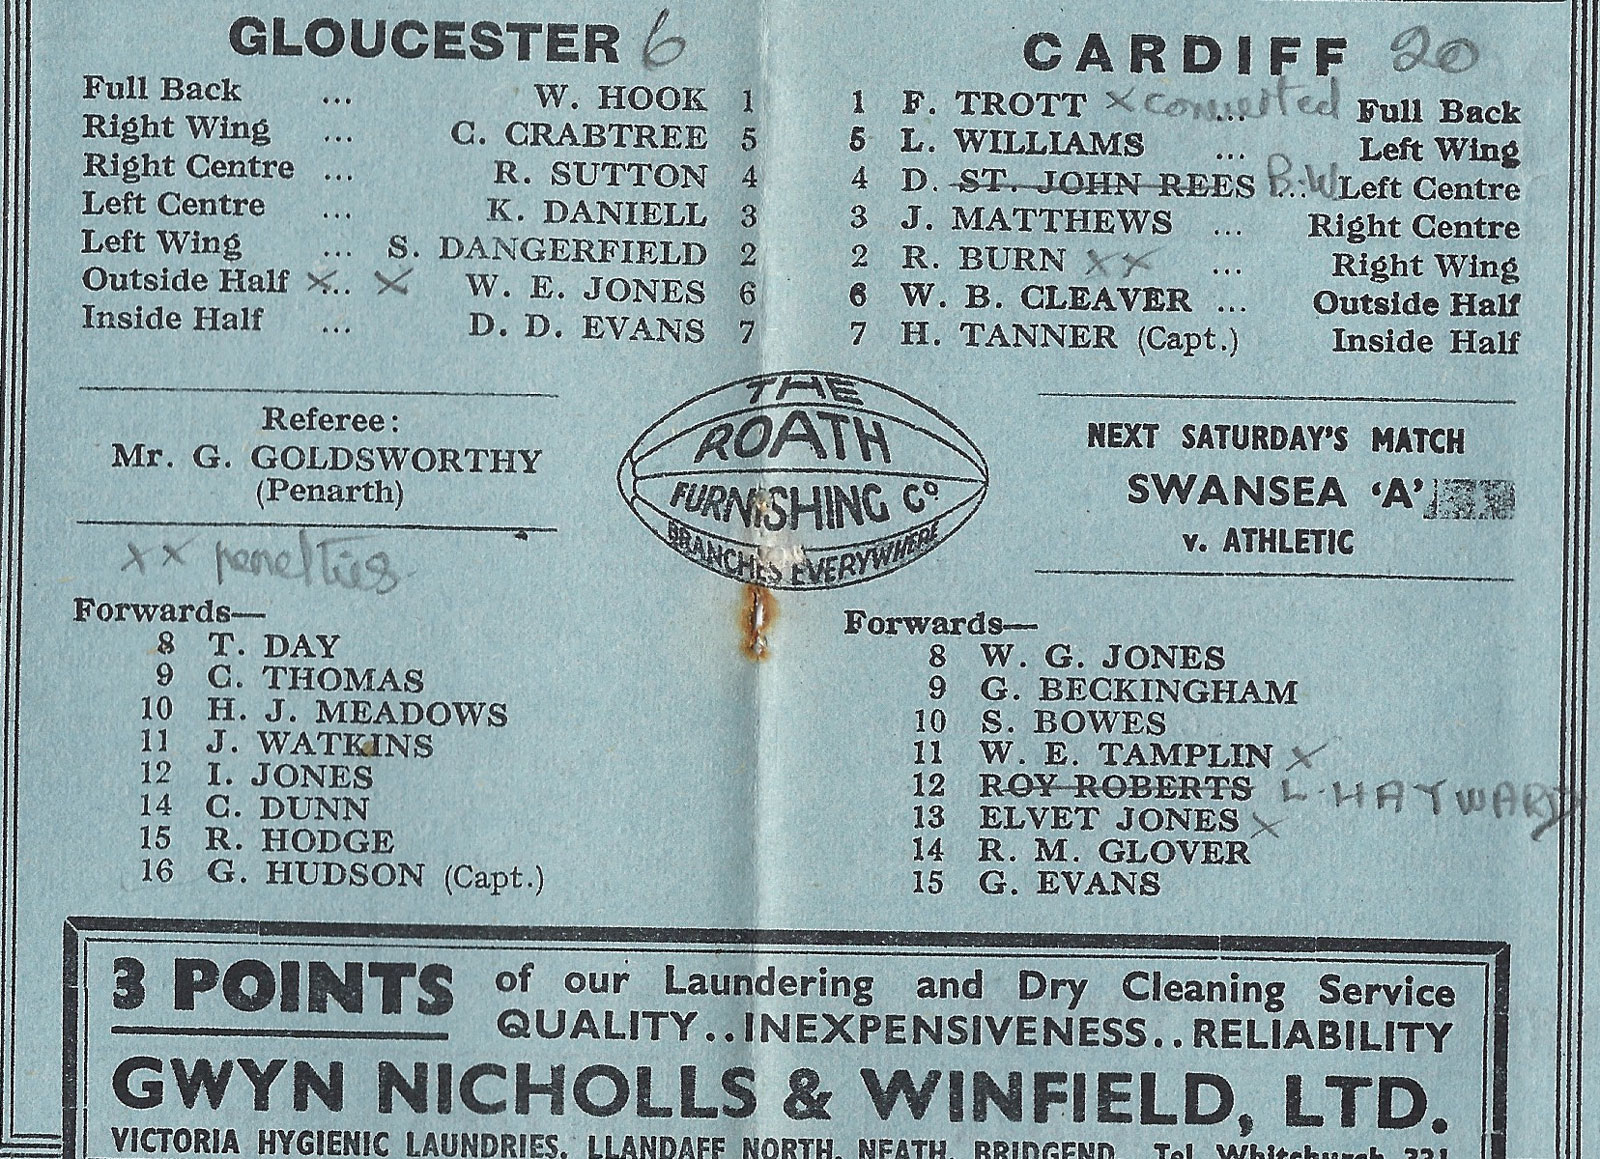 GLOUCESTER 6
Full Back ... W. HOOK 1
Right Wing ... C. CRABTREE 5
Right Centre ... R. SUTTON 4
Left Centre ... K. DANIELL 3
Left Wing ... S. DANGERFIELD 2
Outside Half x... x W. E. JONES 6
Inside Half ... D. D. EVANS 7
CARDIFF 20
1 F. TROTT x converted ... Full Back
5 L. WILLIAMS ... Left Wing
4 D. ST. JOHN REES B.W ... Left Centre
3 J. MATTHEWS ... Right Centre
2 R. BURN xx ... Right Wing
6 W. B. CLEAVER ... Outside Half
7 H. TANNER (Capt.) Inside Half
Referee:
Mr. G. GOLDSWORTHY
(Penarth)
THE
ROATH
FURNISHING Co
BRANCHES EVERYWHERE
NEXT SATURDAY'S MATCH
SWANSEA 'A'
v. ATHLETIC
xx penalties
Forwards—
8 T. DAY
9 C. THOMAS
10 H. J. MEADOWS
11 J. WATKINS
12 I. JONES
14 C. DUNN
15 R. HODGE
16 G. HUDSON (Capt.)
Forwards—
8 W. G. JONES
9 G. BECKINGHAM
10 S. BOWES
11 W. E. TAMPLIN x
12 ROY ROBERTS L. HAYWARD
13 ELVET JONES x
14 R. M. GLOVER
15 G. EVANS
3 POINTS of our Laundering and Dry Cleaning Service
QUALITY..INEXPENSIVENESS..RELIABILITY
GWYN NICHOLLS & WINFIELD, LTD.
VICTORIA HYGIENIC LAUNDRIES, LLANDAFF NORTH, NEATH, BRIDGEND. Tel. Whitchurch 331